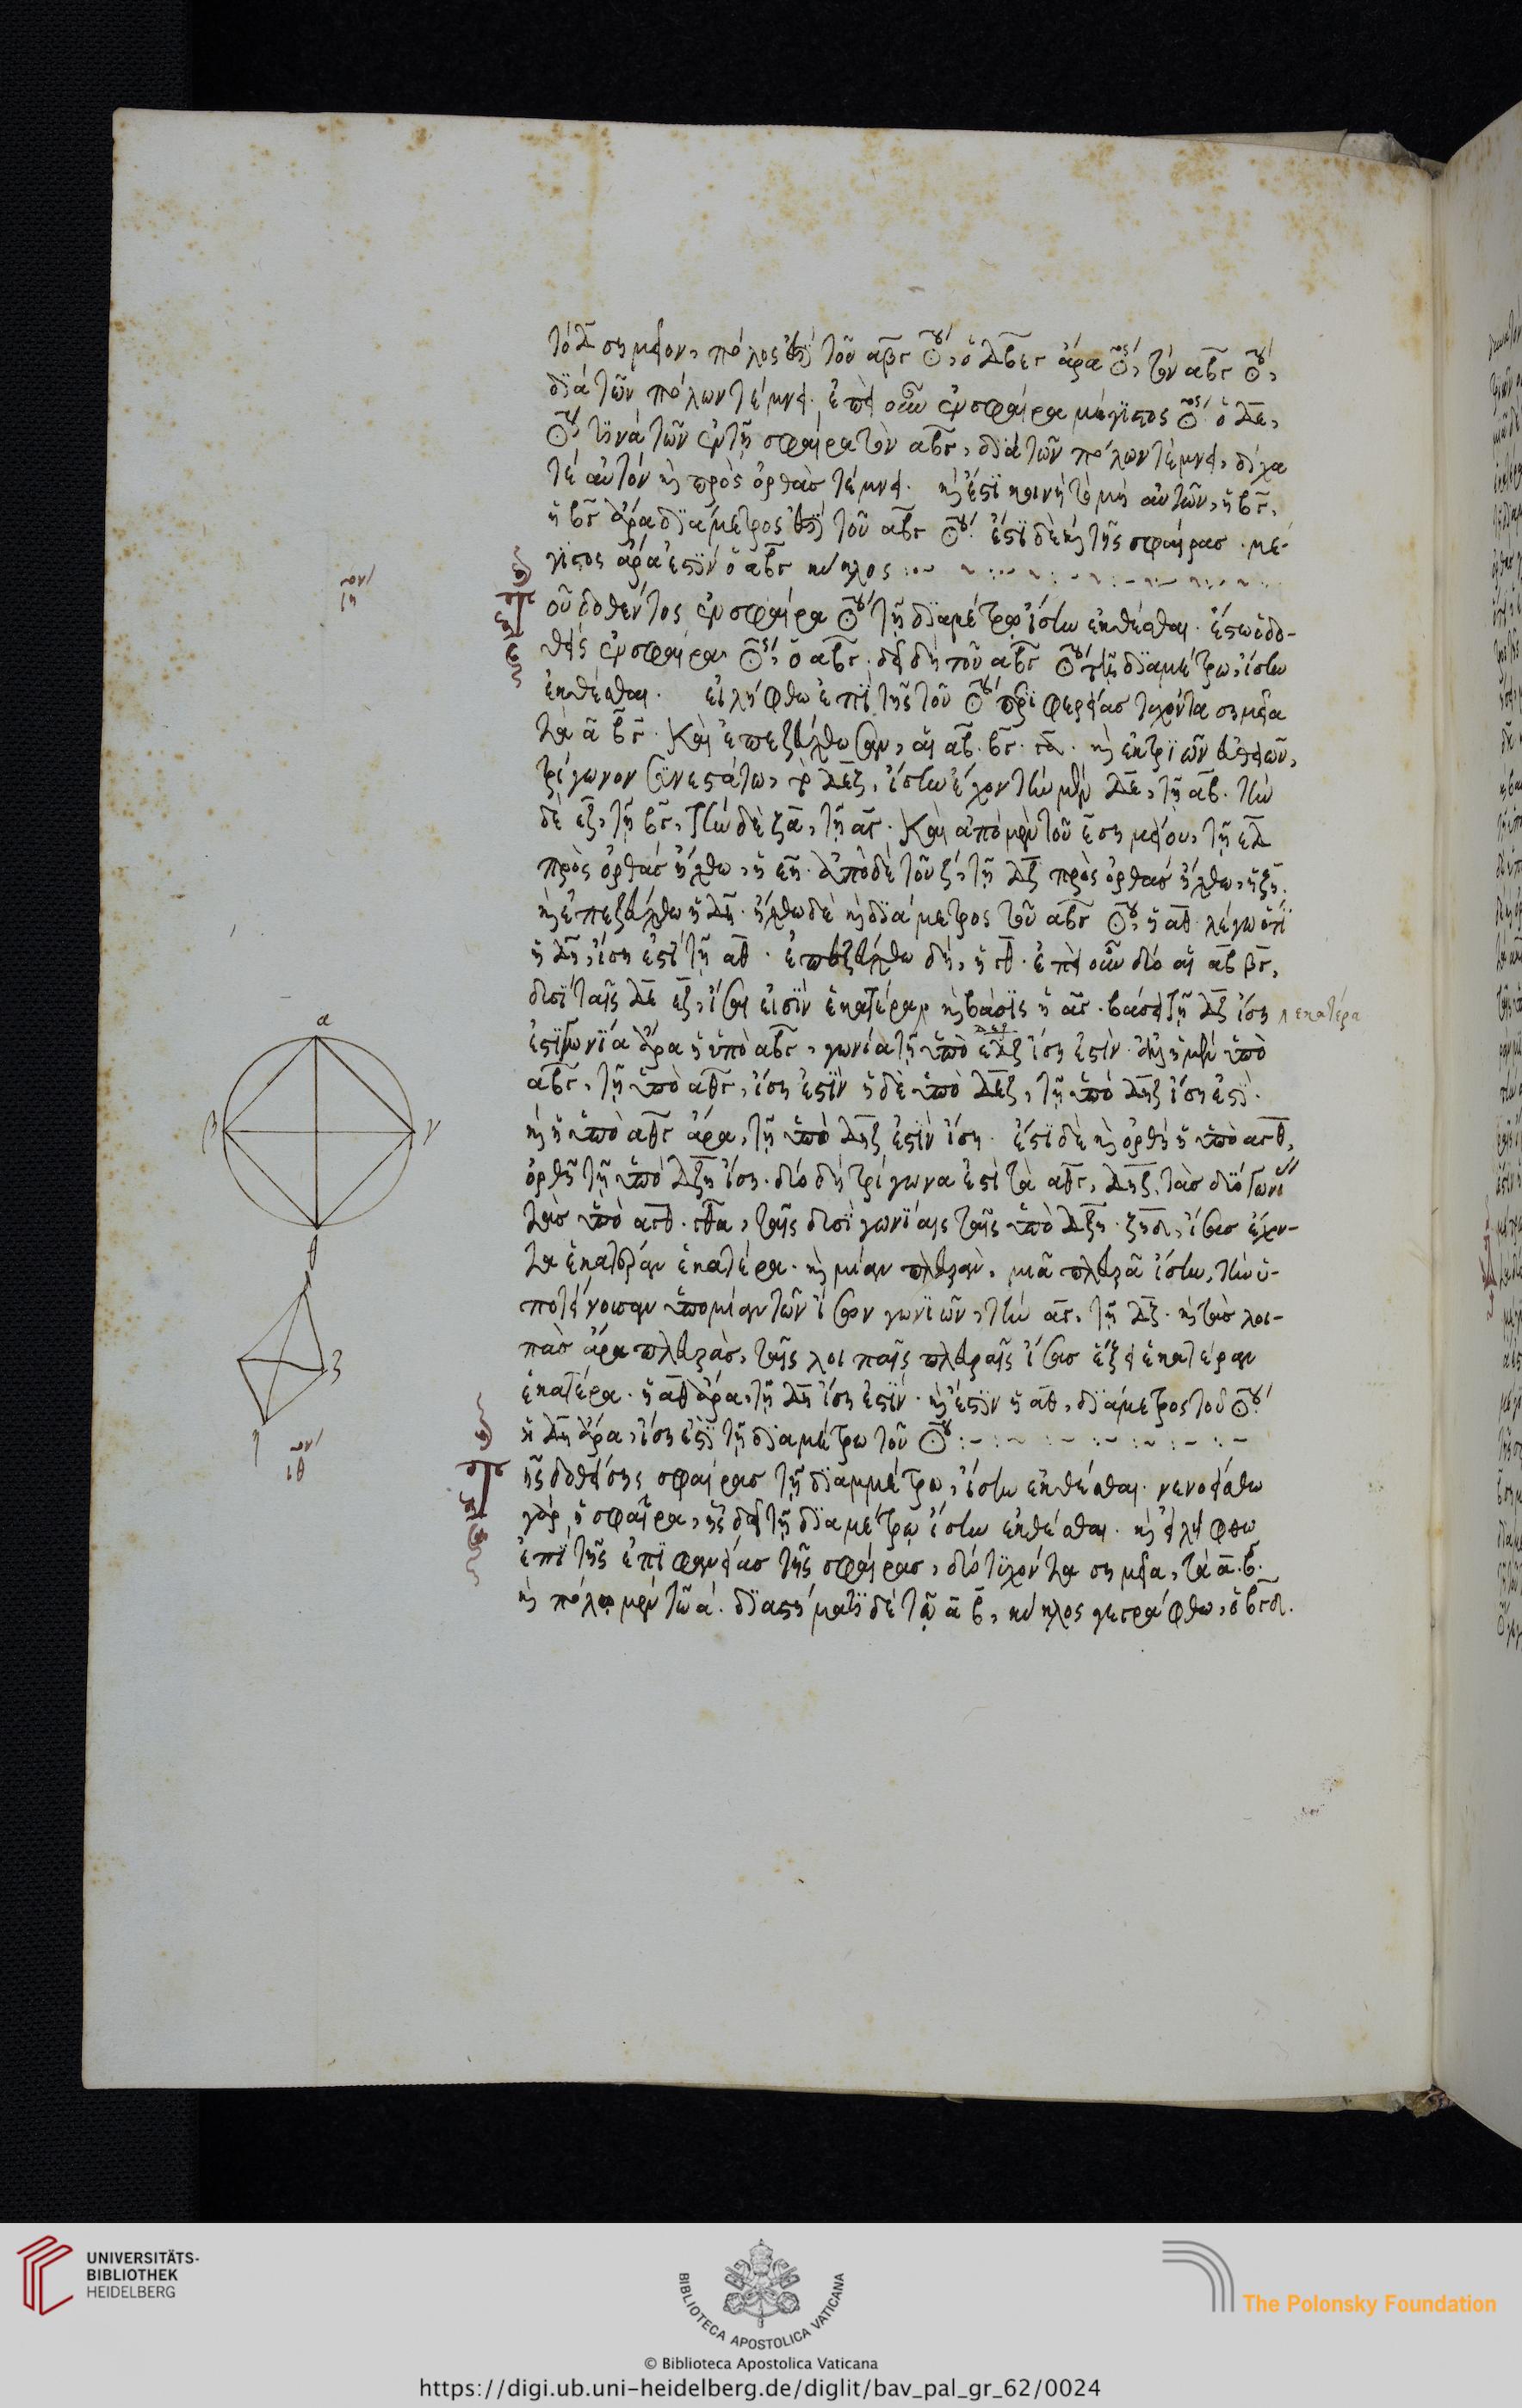 τὸ δ σημεῖον, πόλος ἐστὶ τοῦ αβγ ☉ου, ὁ δβεγ ἄρα ☉ος, τὸν αβγ ☉ον,
διὰ τῶν πόλων τέμνει. ἐπεὶ οὖν ἐν σφαίρα μέγιστος ☉ος ὁ δε,
☉ον τινὰ τῶν ἐν τῇ σφαίρα τὸν αβγ, διὰ τῶν πόλων τέμνει, δίχα
τὲ αὐτὸν καὶ πρὸς ὀρθὰς τέμνει. καὶ ἔστι κοινὴ τομὴ αὐτῶν, ἡ βγ,
ἡ βγ ἄρα διάμετρος ἐστὶ τοῦ αβγ ☉ου. ἔστι δὲ καὶ τῆς σφαίρας. μέ-
γιστος ἄρα ἐστὶν ὁ αβγ κύκλος :~
ιη
Τοῦ δοθέντος ἐν σφαίρα ☉ου τῇ διαμέτρῳ ἴσην ἐκθέσθαι. ἔστω ὁ δο-
θεὶς ἐν σφαίρα ☉ος, ὁ αβγ. δεῖ δὴ τοῦ αβγ ☉ου τῇ διαμέτρω, ἴσην
ἐκθέσθαι. εἰλήφθω ἐπὶ τῆς τοῦ ☉ου περιφερείας τυχόντα σημεῖα
τὰ α β γ. καὶ ἐπεζεύχθωσαν, αἱ αβ. βγ. γα. καὶ ἐκ τριῶν εὐθειῶν,
τρίγωνον συνεστάτω, τὸ δεζ, ἴσην ἔχον τὴν μὲν δε, τῇ αβ. τὴν
δὲ εζ, τῇ βγ, τὴν δὲ ζδ, τῇ αγ. καὶ ἀπὸ μὲν τοῦ ε σημείου, τῇ εδ
πρὸς ὀρθὰς ἤχθω, ἡ εη. ἀπὸ δὲ τοῦ ζ, τῇ δζ πρὸς ὀρθὰς ἤχθω, ἡ ζη.
καὶ ἐπεζεύχθω ἡ δη. ἤχθω δὲ καὶ διάμετρος τοῦ αβγ ☉ου, ἡ αθ. λέγω ὅτι
ἡ δη, ἴση ἐστὶ τῇ αθ. ἐπεζεύχθω δὴ, ἡ γθ. ἐπεὶ οὖν δύο αἱ αβ βγ,
δυσὶ ταῖς δε εζ, ἴσαι εἰσὶν ἑκατέραν καὶ βάσις ἡ αγ. βάσει τῇ δζ ἴση
ἑκατέρα
ἐστὶ γωνία ἄρα ἡ ὑπὸ αβγ, γωνία τῇ ὑπὸ εδζ ἴση ἐστίν. ἀλλ' ἡ μὲν ὑπὸ
δεζ
αβγ, τῇ ὑπὸ αθγ, ἴση ἐστὶν ἡ δὲ ὑπὸ δεζ, τῇ ὑπὸ δηζ ἴση ἐστί.
καὶ ἡ ὑπὸ αθγ ἄρα, τῇ ὑπὸ δηζ ἐστὶν ἴση. ἔστι δὲ καὶ ὀρθὴ ἡ ὑπὸ αγθ,
ὀρθῇ τῇ ὑπὸ δζη ἴση. δύο δὴ τρίγωνα ἐστὶ τὰ αθγ, δηζ, τὰς δύο γωνί
τὰς ὑπὸ αγθ. γθα, ταῖς δυσὶ γωνίαις ταῖς ὑπὸ δζη. ζηδ, ἴσας ἔχον-
τα ἑκατέραν ἑκατέρα. καὶ μίαν πλευρὰν, μιᾶ πλευρᾶ ἴσην, τὴν ὑ-
ποτείνουσαν ὑπὸ μίαν τῶν ἴσων γωνιῶν, τὴν αγ, τῇ δζ. καὶ τὰς λοι-
πὰς ἄρα πλευρὰς, ταῖς λοιπαῖς πλευραῖς ἴσας ἕξει ἑκατέραν
ἑκατέρα. ἡ αθ ἄρα, τῇ δη ἴση ἐστίν. καὶ ἔστιν ἡ αθ, διάμετρος τοῦ ☉ου.
ἡ δη ἄρα, ἴση ἐστὶ τῇ διαμέτρω τοῦ ☉ου :~
ιθ
Τῆς δοθείσης σφαίρας τῇ διαμμέτρω, ἴσην ἐκθέσθαι. νενοείσθω
γὰρ, ἡ σφαῖρα, ἧς δεῖ τῇ διαμέτρω ἴσην ἐκθέσθαι. καὶ εἰλήφθω
ἐπὶ τῆς ἐπιφανείας τῆς σφαίρας, δύο τυχόντα σημεῖα, τὰ α. β.
καὶ πόλω μὲν τῶ α. διαστήματι δὲ τῶ α β, κύκλος γεγράφθω, ὁ βγδ.
α
β
γ
θ
ζ
η
UNIVERSITÄTS-
BIBLIOTHEK
HEIDELBERG
BIBLIOTECA APOSTOLICA VATICANA
The Polonsky Foundation
© Biblioteca Apostolica Vaticana
https://digi.ub.uni-heidelberg.de/diglit/bav_pal_gr_62/0024